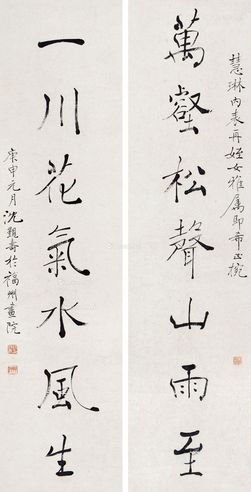 慧琳内表再姪女雅属即希正捥
萬壑松聲山雨至
一川花氣水風生
庚申元月沈覲壽於福州畫院